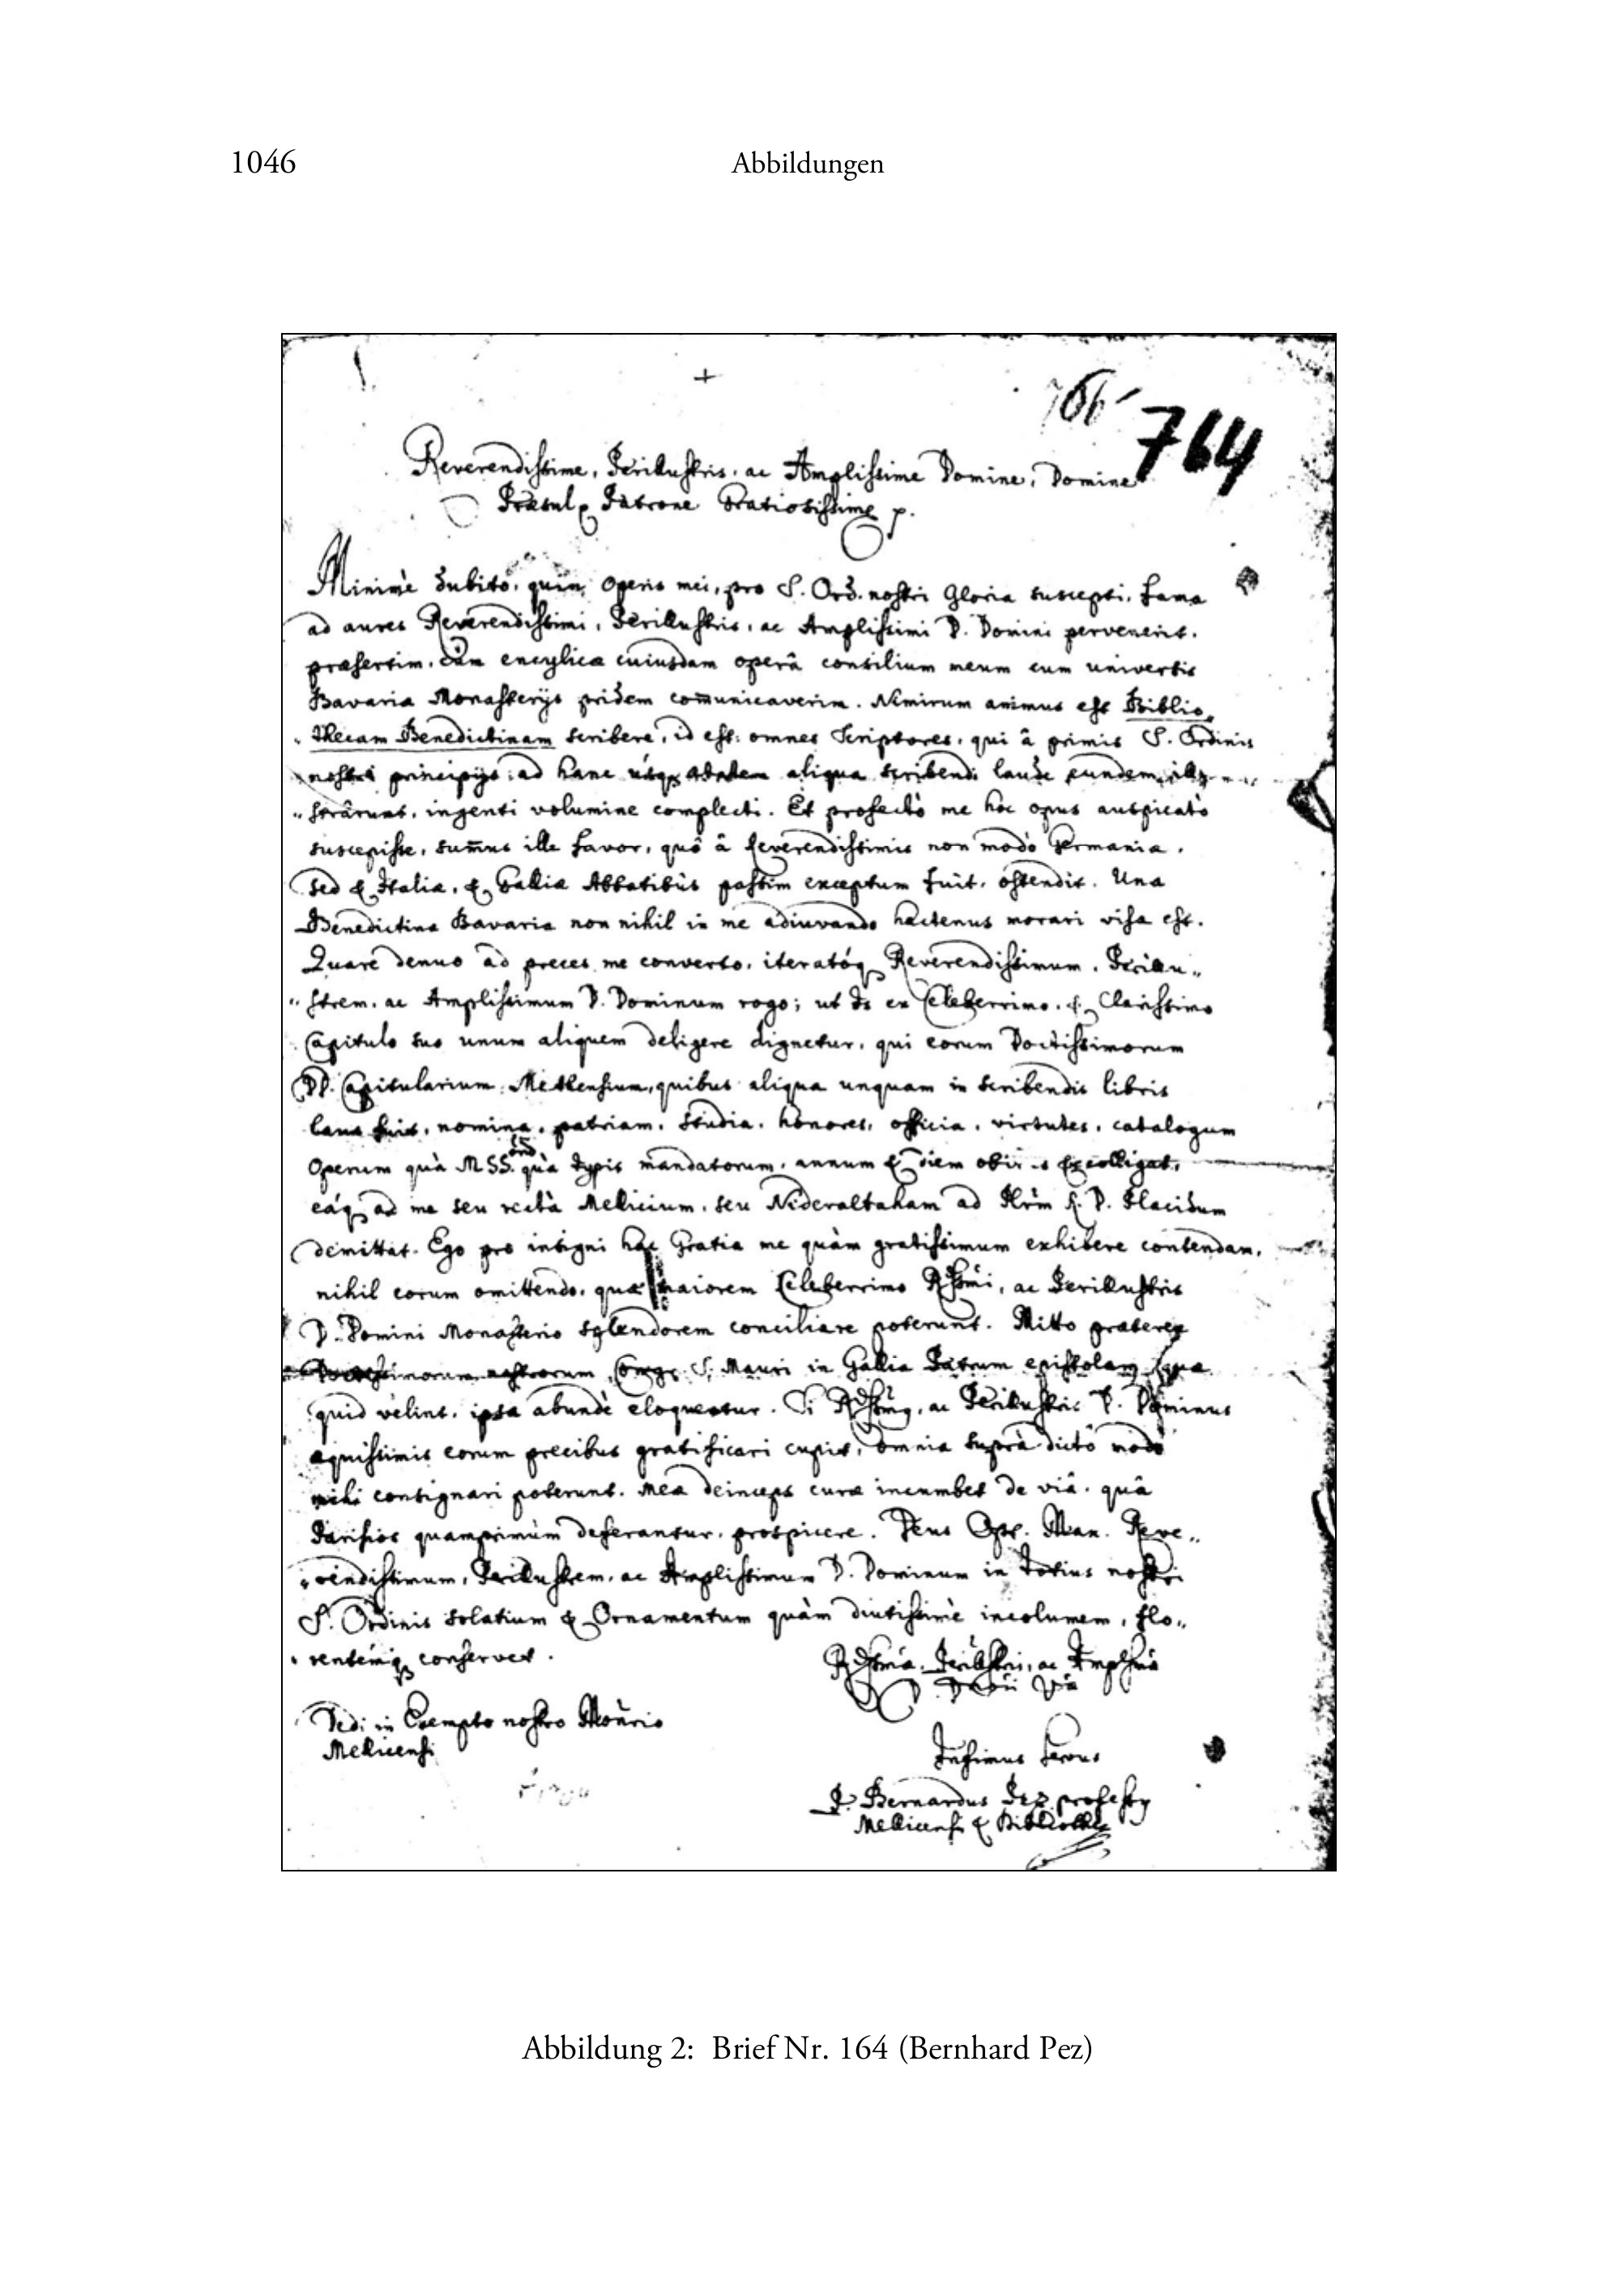 1046
Abbildungen
+
766
764
Reverendissime, Perillustris, ac Amplissime Domine, Domine
Præsul, Patrone Gratiosissime p.
Minimè dubito, quin operis mei, pro S. Ord. nostri Gloria suscepti, fama
ad aures Reverendissimi, Perillustris, ac Amplissimi D. Domini pervenerit.
præsertim, cùm encyclicæ cuiusdam operâ consilium meum cum universis
Bavariæ Monasterijs pridem com̄unicaverim. Nimirum animus est Biblio„
„thecam Benedictinam scribere, id est: omnes Scriptores, qui â primis S. Ordinis
nostri principijs ad hanc usq; ætatem aliqua scribendi laude eundem illu„
„strârunt, ingenti volumine complecti. Et profectò me hoc opus auspicatò
suscepisse, sum̄us ille favor, quô â Reverendissimis non modò Germaniæ,
sed & Italiæ, & Galliæ Abbatibus passim exceptum fuit, ostendit. Una
Benedictina Bavaria non nihil in me adiuvando hactenus morari visa est.
Quare denuo ad preces me converto, iteratóq; Reverendissimum, Perillu„
„strem, ac Amplissimum D. Dominum rogo; ut is ex Celeberrimo, & Clarissimo
Capitulo suo unum aliquem deligere dignetur, qui eorum Doctissimorum
PP. Capitularium Mettensium, quibus aliqua unquam in scribendis libris
laus fuit, nomina, patriam, studia, honores, officia, virtutes, catalogum
Operum quà MSS. quà typis mandatorum, annum & diem obitûs &c colligat,
eáq; ad me seu rectà Mellicium, seu Nideraltaham ad P. Placidum
demittat. Ego pro insigni hac Gratia me quàm gratissimum exhibere contendam,
nihil eorum omittendo, quæ maiorem Celeberrimo Rssmi, ac Perillustris
D. Domini Monasterio splendorem conciliare poterunt. Mitto præterea
Doctissimorum nostrorum Congr. S. Mauri in Gallia Patrum epistolam, quæ
quid velint, ipsa abundè eloquetur. Si Rssmus, ac Perillustris D. Dominus
æquissimis eorum precibus gratificari cupit, omnia suprà dictô modô
mihi consignari poterunt. Mea deinceps cura incumbet de viâ, quâ
Parisios quamprimùm deferantur, prospicere. Deus Opt. Max. Reve„
„rendissimum, Perillustrem, ac Amplissimum D. Dominum in totius nostri
S. Ordinis solatium & Ornamentum quàm diutissimè incolumem, flo„
„rentémq; conservet.
Dedi in Exempto nostro Mon̄rio
Mellicensi
Infimus servus
P. Bernardus Pez professus
Mellicensis & Bibliothec
Abbildung 2: Brief Nr. 164 (Bernhard Pez)